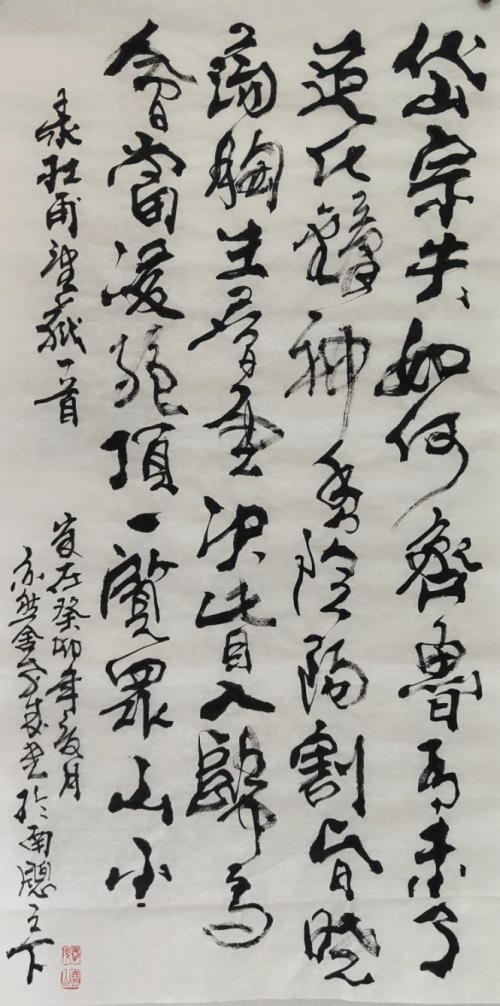 岱宗夫如何齊魯青未了
造化鍾神秀陰陽割昏曉
蕩胸生曾雲決眥入歸鳥
會當凌絕頂一覽眾山小
录杜甫望嶽一首
岁在癸卯年夏月
亦然書於南窗之下